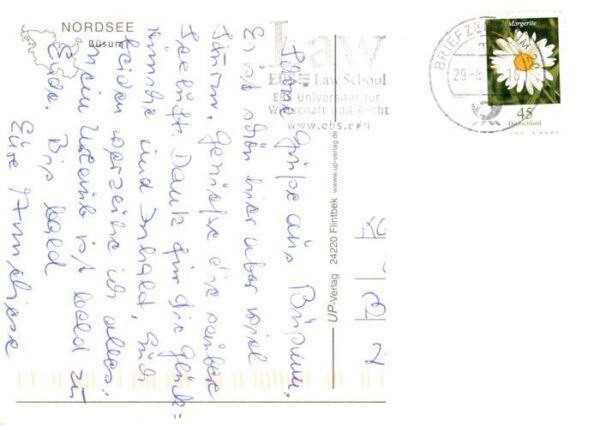 NORDSEE
Büsum
Law
EBS Law School
EBS Universität für
Wirtschaft und Recht
www.ebs.edu
BRIEFZE
29
Margerite
45
Deutschland
Grüße aus Büsum.
Es ist schön hier aber viel
Sturm. Genieße die saubere
Seeluft. Dank für die Glück=
wünsche und Inhalt. Euch
beiden verzeihe ich alles.
Mein Urlaub ist bald zu
Ende. Bis bald
Eure Anneliese
UP-Verlag 24220 Flintbek www.up-verlag.de